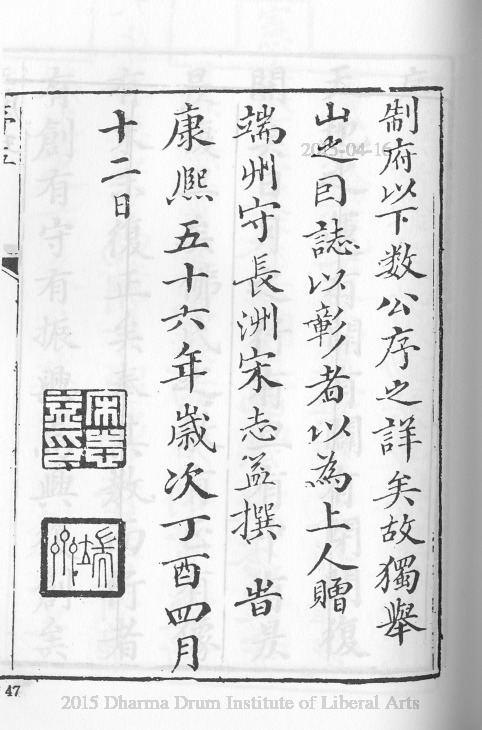 制府以下数公序之詳矣故獨舉
山之因誌以彰者以為上人贈
端州守長洲宋志益撰 旹
康熙五十六年歲次丁酉四月
十二日
宋志益印
端州
2015-04-16
47
2015 Dharma Drum Institute of Liberal Arts